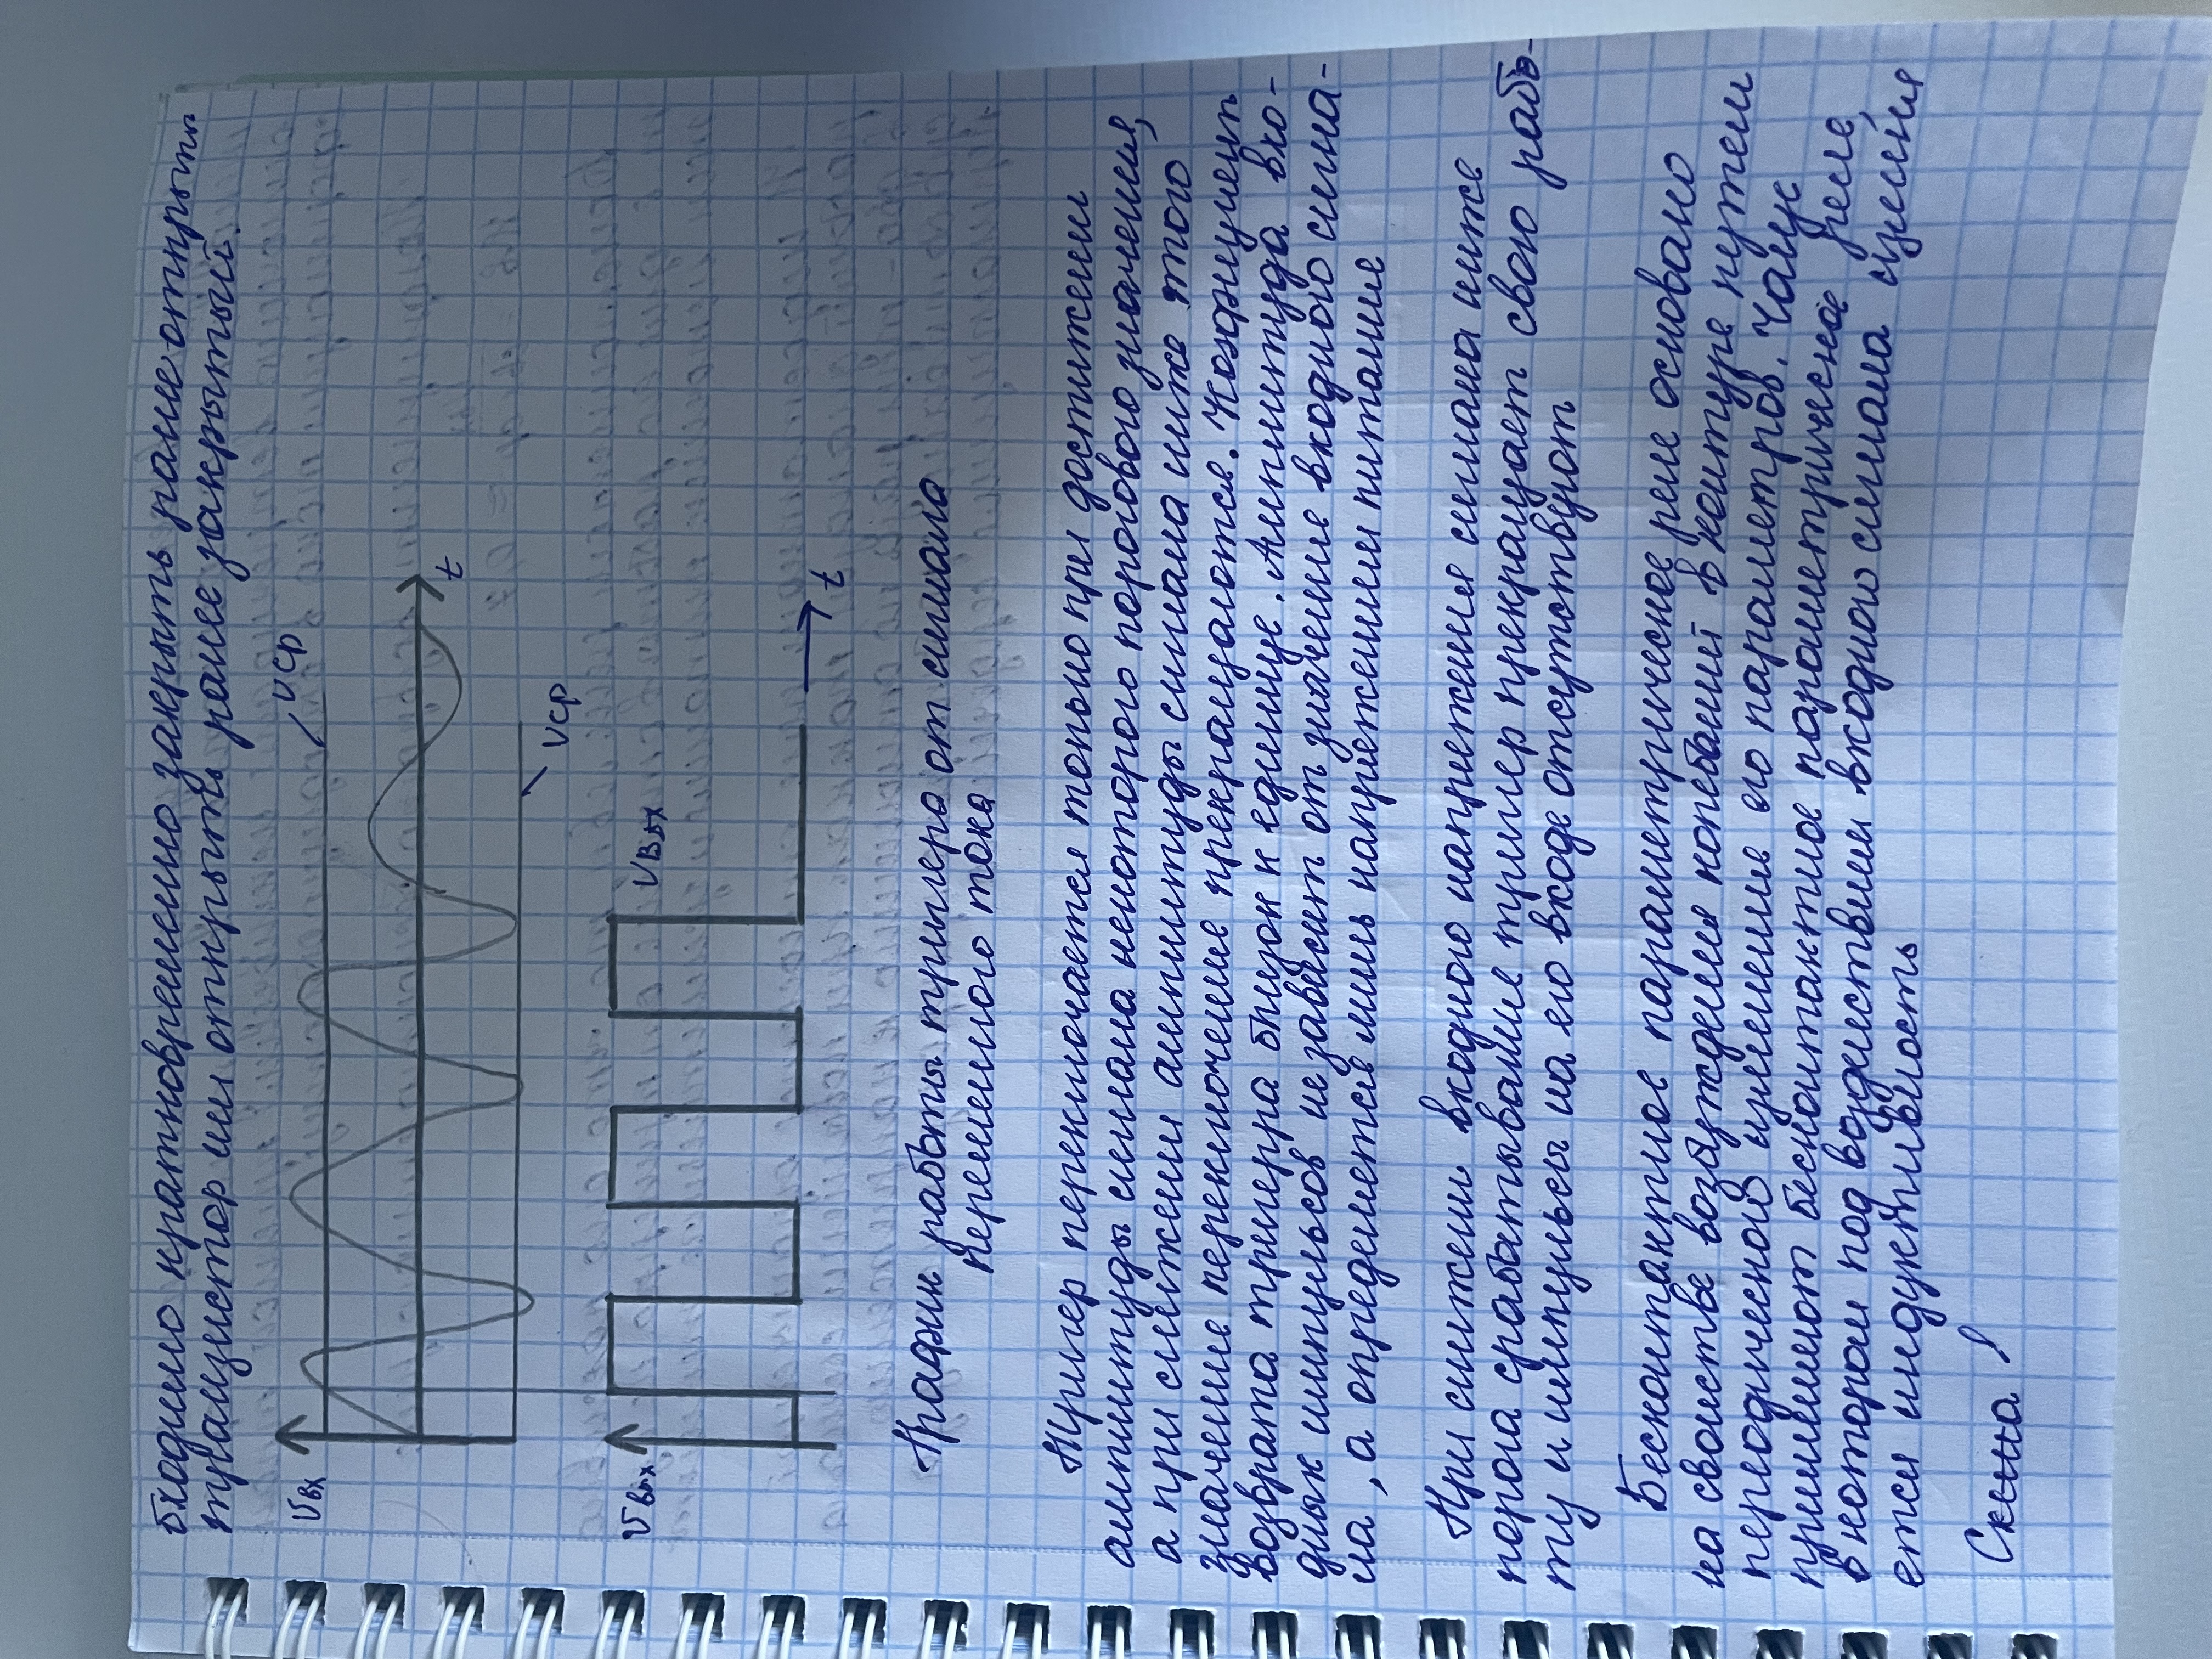 бходимо кратковременно закрыть ранее открыты
транзистор или открыть ранее закрытый.
Uвх
Uср
t
Uср
Uвых
Uвых
t
График работы тригера от сигнала
переменного тока
Тригер переключается только при достижении
амплитуды сигнала некоторого порогового значения,
а при снижении амплитуды сигнала ниже этого
значение переключение прекращается. Коэфициент
возврата тригера близок к единице. Амплитуда вхо-
дных импульсов независит от значение входного сигна-
ла, а определяется лишь напряжением питание
При снижении входного напряжения сигнала ниже
порога срабатывание тригер прекращает свою рабо-
ту и импульсы на его входе отсутствуют
Бесконтактное параметрическое реле основано
на свойстве возбуждения колебаний в контуре путем
периодического изменение его параметров. Чаще
применяют бесконтактное параметрическое реле,
в котором под воздействием входного сигнала изменя
ется индуктивность
Схема!